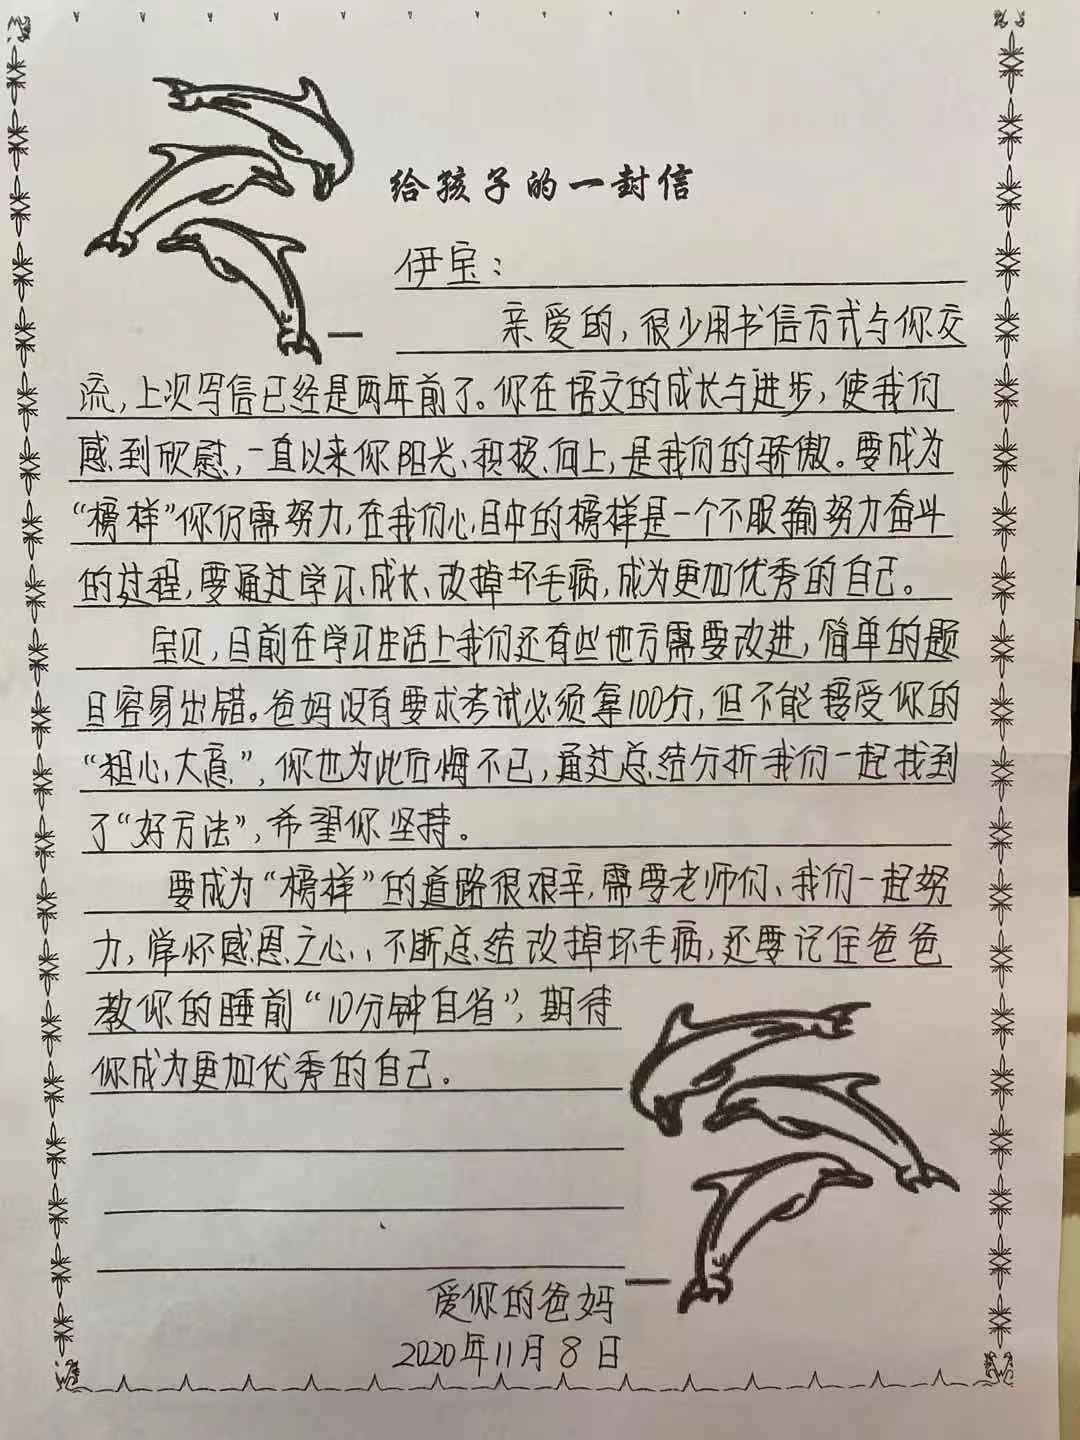 给孩子的一封信
伊宝：
亲爱的，很少用书信方式与你交
流，上次写信已经是两年前了。你在语文的成长与进步，使我们
感到欣慰，一直以来你阳光、积极、向上，是我们的骄傲。要成为
“榜样”你仍需努力，在我们心目中的榜样是一个不服输努力奋斗
的过程，要通过学习、成长、改掉坏毛病，成为更加优秀的自己。
宝贝，目前在学习生活上我们还有些地方需要改进，简单的题
目容易出错。爸妈没有要求考试必须拿100分，但不能接受你的
“粗心大意”，你也为此后悔不已，通过总结分析我们一起找到
了“好方法”，希望你坚持。
要成为“榜样”的道路很艰辛，需要老师们、我们一起努
力，常怀感恩之心、不断总结改掉坏毛病，还要记住爸爸
教你的睡前“10分钟自省”，期待
你成为更加优秀的自己。
爱你的爸妈
2020年11月8日